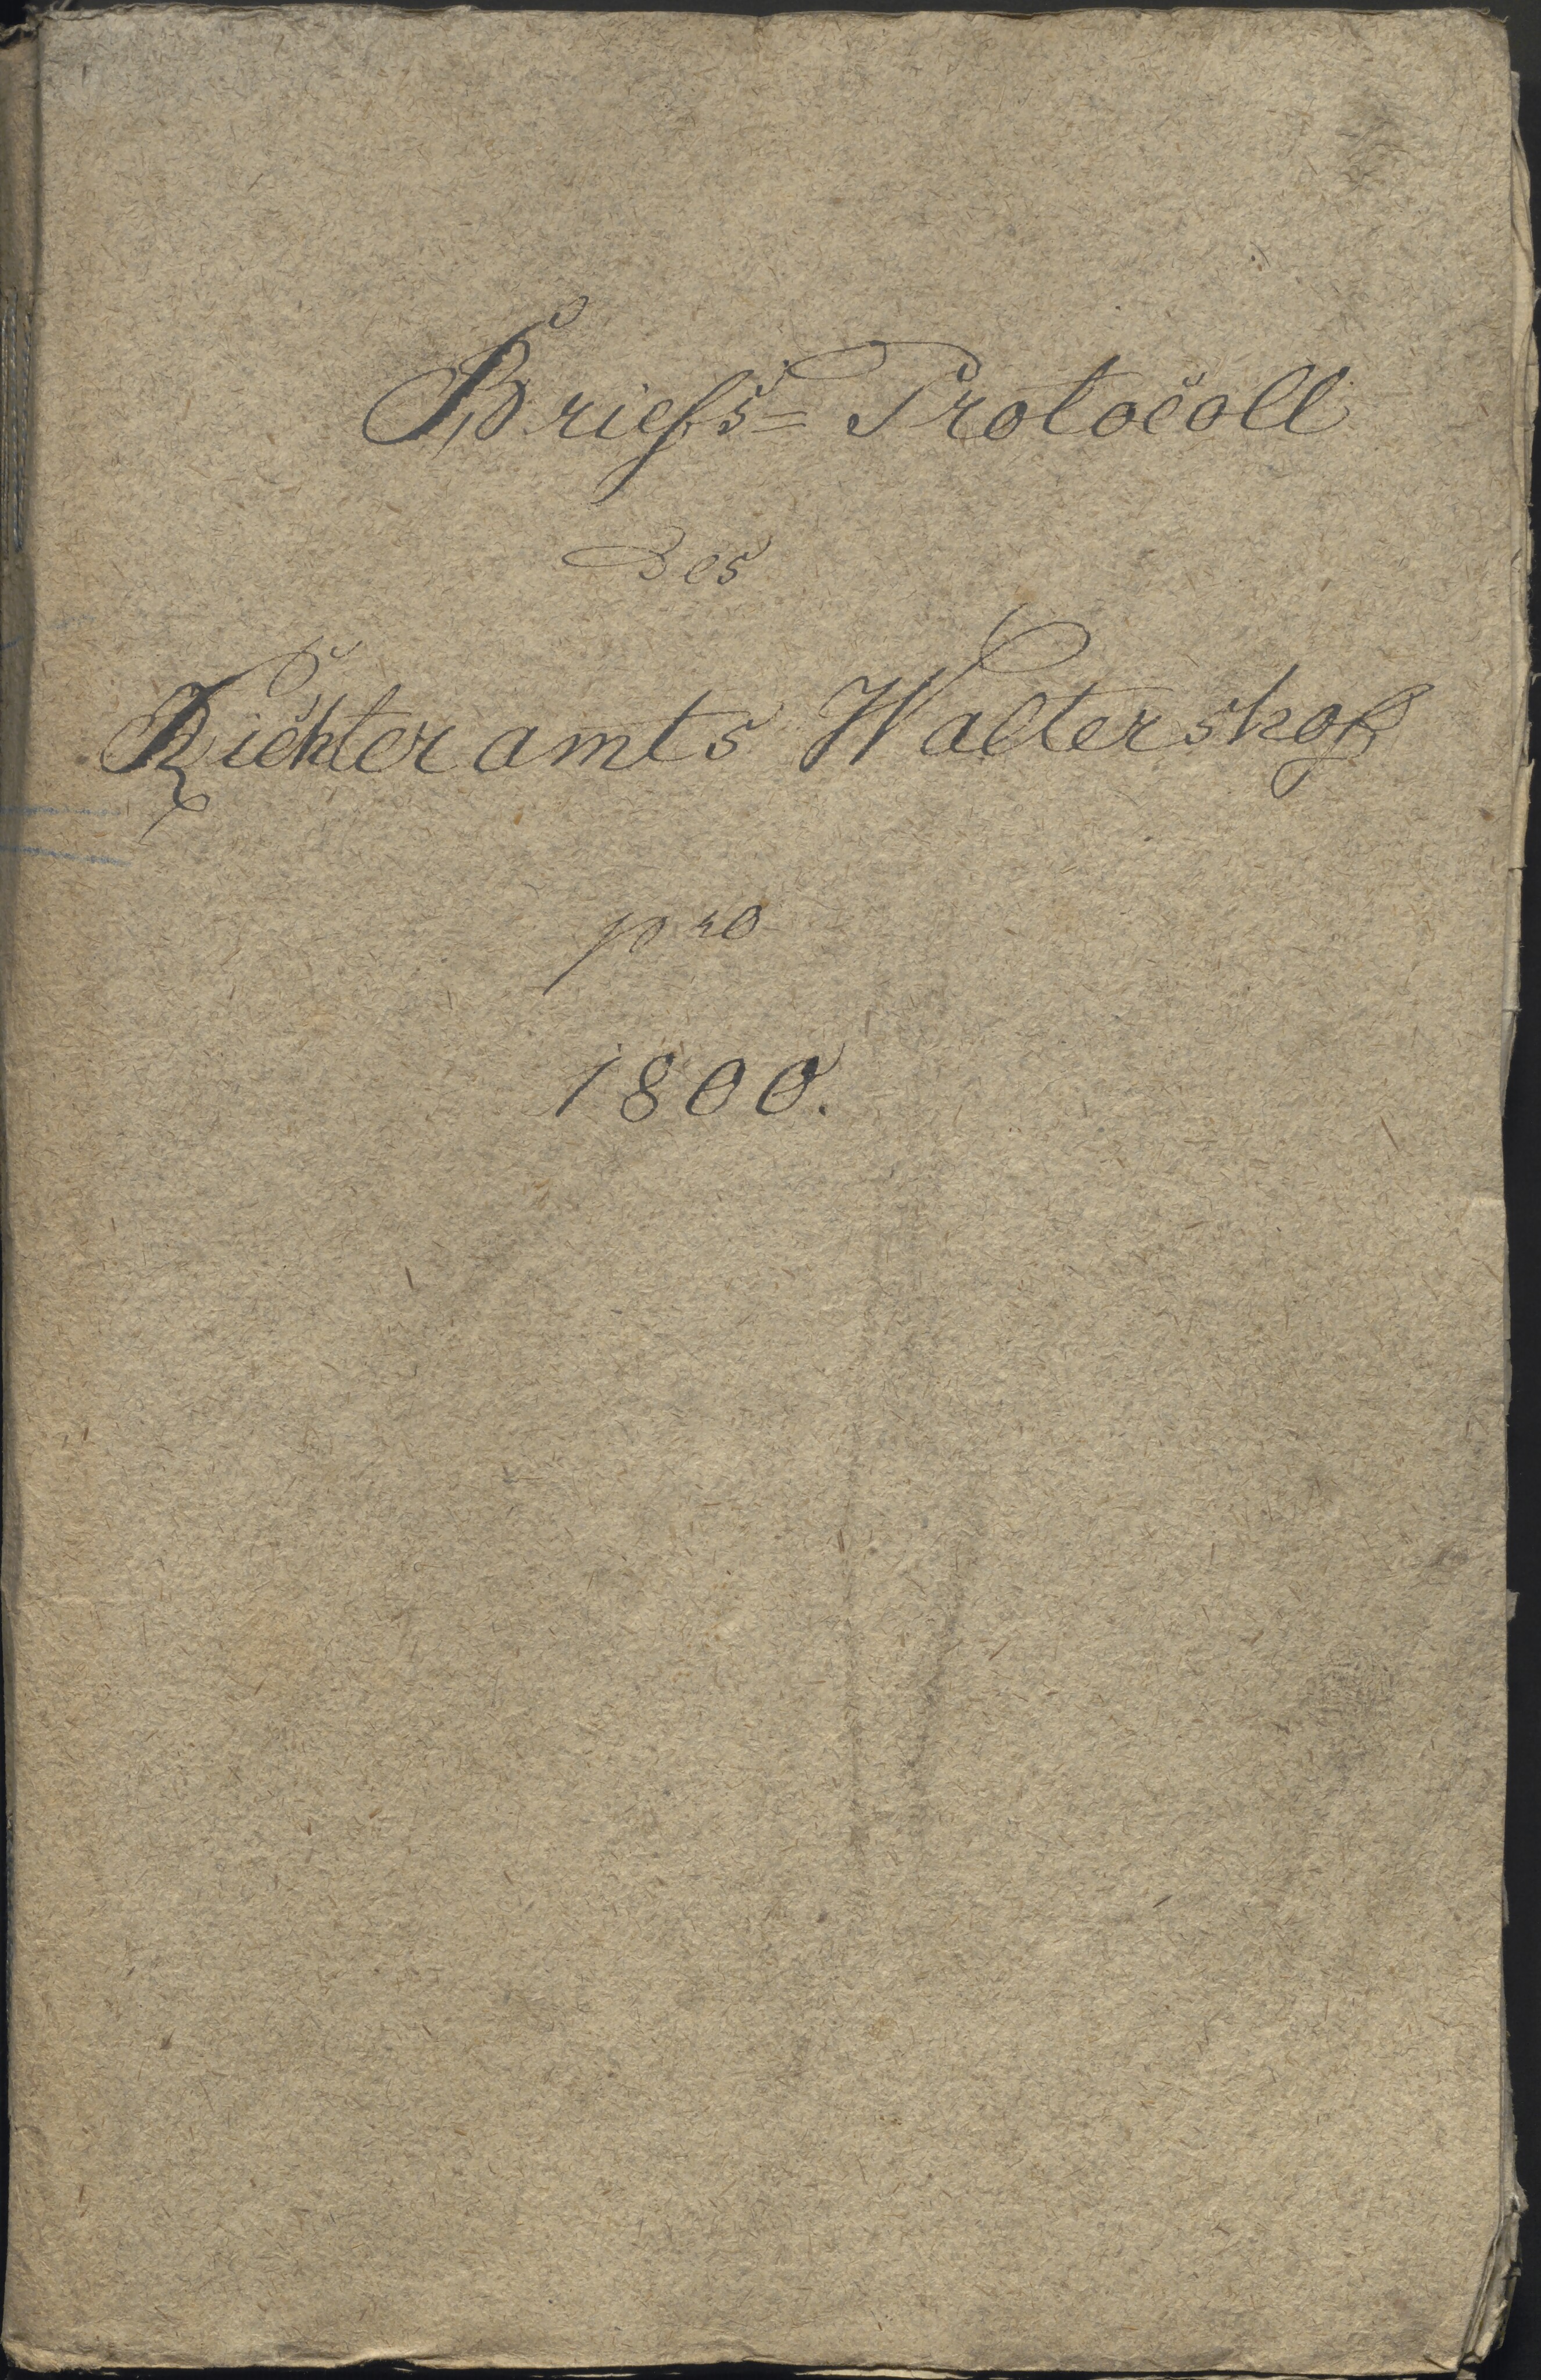 Briefs= Protocoll
des
Richteramts Waltershof
pro
1800.